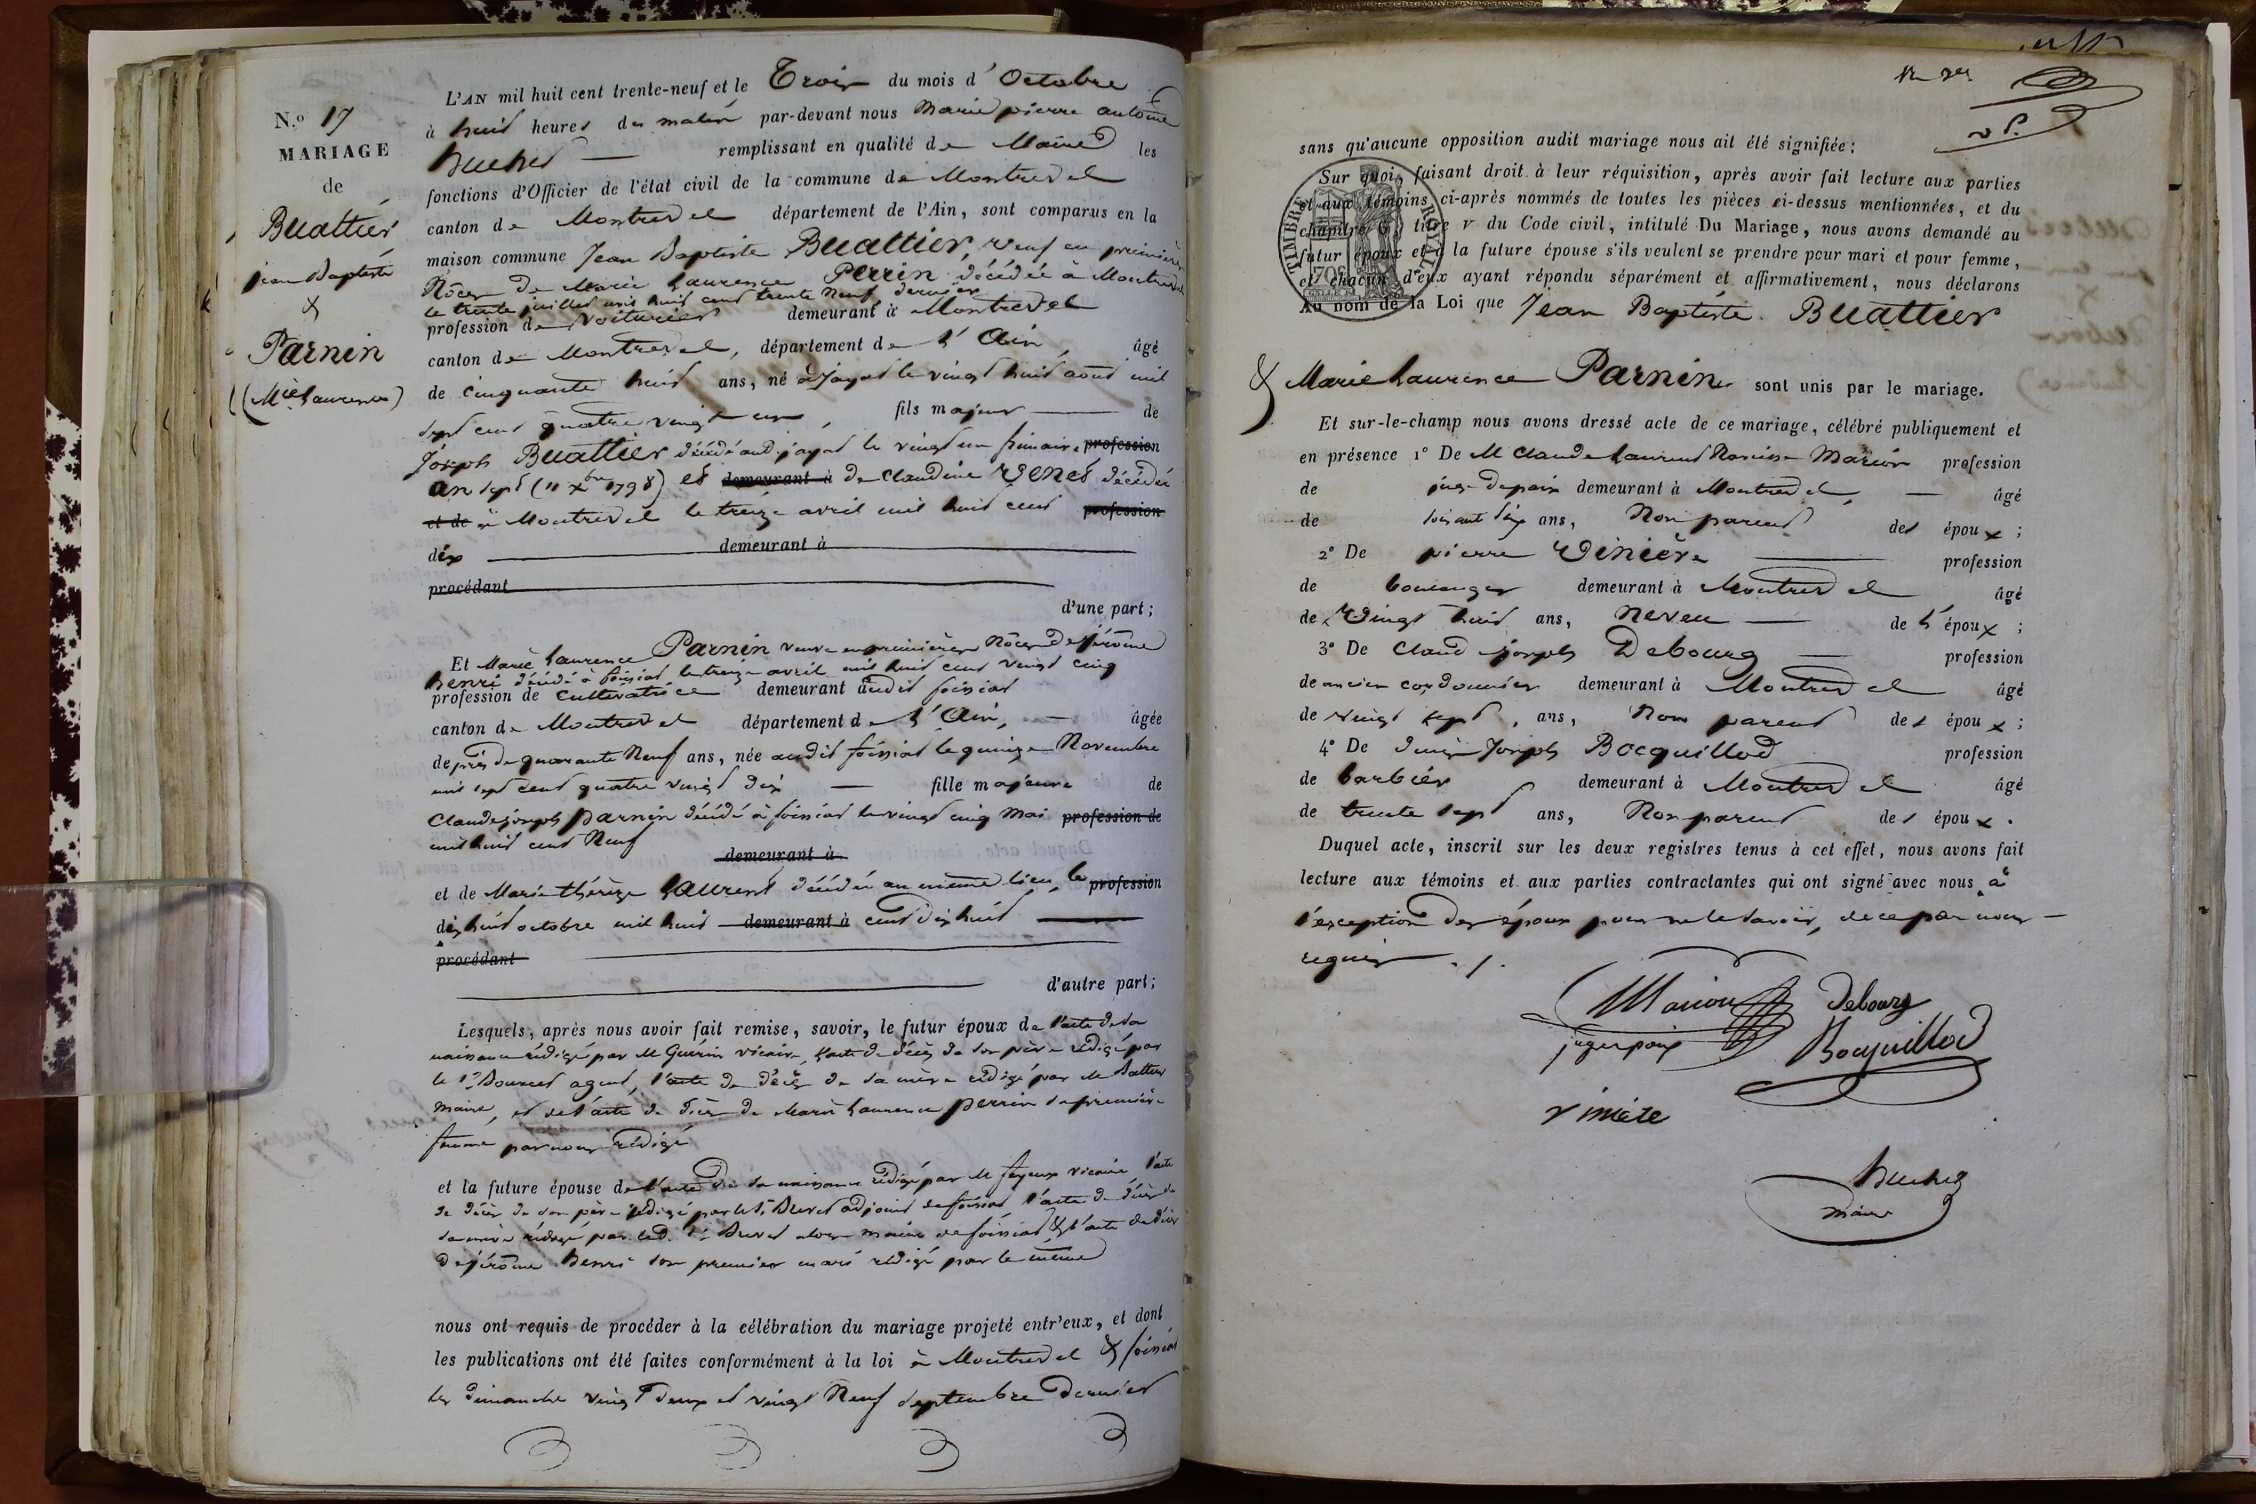 N.o 17
MARIAGE
de
Buattier
jean Baptiste
&
Parnin
(Mie Laurence)
L'AN mil huit cent trente-neuf et le Trois du mois d'Octobre
à huit heures du matin par-devant nous Marie pierre antoine
huchet — remplissant en qualité de Maire les
fonctions d'Officier de l'état civil de la commune de Montrevel
canton de Montrevel département de l'Ain, sont comparus en la
maison commune Jean Baptiste Buattier, veuf en première
Nôces de Marie Laurence Perrin décédée à Montrevel
le trente juillet mil huit cent trente neuf dernier
profession de Voiturier demeurant à Montrevel
canton de Montrevel, département de l'Ain, âgé
de cinquante huit ans, né à Jayat le vingt huit aout mil
sept cent quatre vingt un, fils majeur — de
Joseph Buattier décédé audit jayat le vingt un frimaire profession
an sept (11 Xbre 1798) et demeurant à de Claudine Venet décédée
et de à Montrevel le treize avril mil huit cent profession
dix demeurant à
procédant
d'une part;
Et Marie Laurence Parnin veuve en premières Nôces de jérôme
henri décédé à foissiat le treize avril mil huit cent vingt cinq
profession de Cultivatrice demeurant audit foissiat
canton de Montrevel département de l'Ain, — âgée
de près de quarante Neuf ans, née audit foissiat le quinze Novembre
mil sept cent quatre vingt dix — fille majeure de
Claude joseph Parnin décédé à foissiat le vingt cinq Mai profession de
mil huit cent Neuf
demeurant à
et de Marie thérèze Laurent décédée au même lieu le profession
dix huit octobre mil huit demeurant à cent dix huit
procédant
d'autre part;
Lesquels, après nous avoir fait remise, savoir, le futur époux de l'acte de sa
naissance rédigé par M Guérin vicaire, l'acte de décès de son père rédigé par
le Sr agent, l'acte de décès de sa mère rédigé par M
maire, et de l'acte de décès de Marie Laurence Perrin sa première
femme par nous rédigé
et la future épouse de l'acte de sa naissance rédigé par M vicaire l'acte
de décès de son père rédigé par le Sr adjoint de foissiat, l'acte de décès de
sa mère rédigé par led. Sr alors maire de foissiat & l'acte de décès
de jérôme henri son premier mari rédigé par le même
nous ont requis de procéder à la célébration du mariage projeté entr'eux, et dont
les publications ont été faites conformément à la loi à Montrevel & foissiat
les dimanche vingt deux et vingt Neuf septembre dernier
sans qu'aucune opposition audit mariage nous ait été signifiée;
Sur quoi, faisant droit à leur réquisition, après avoir fait lecture aux parties
et aux témoins ci-après nommés de toutes les pièces ci-dessus mentionnées, et du
chapitre 6, titre V du Code civil, intitulé Du Mariage, nous avons demandé au
futur époux et à la future épouse s'ils veulent se prendre pour mari et pour femme,
et chacun d'eux ayant répondu séparément et affirmativement, nous déclarons
Au nom de la Loi que Jean Baptiste Buattier
TIMBRE ROYAL
& Marie Laurence Parnin sont unis par le mariage.
Et sur-le-champ nous avons dressé acte de ce mariage, célébré publiquement et
en présence 1° De M Claude Laurent Marion profession
de juge depaix demeurant à Montrevel, — âgé
de ans, Non parent des époux;
2° De pierre — profession
de boulanger demeurant à Montrevel âgé
de Vingt huit ans, Neveu — de l'époux;
3° De Claude joseph Debourg — profession
de ancien cordonnier demeurant à Montrevel âgé
de vingt sept, ans, Non parent des époux;
4° De Joseph Bocquillod profession
de barbier demeurant à Montrevel âgé
de trente sept ans, Non parent des époux.
Duquel acte, inscrit sur les deux registres tenus à cet effet, nous avons fait
lecture aux témoins et aux parties contractantes qui ont signé avec nous, à
l'exception des époux pour ne le savoir, de ce par nous
requis ./.
Marion Debourg
juge paix Bocquillod
huchet
maire